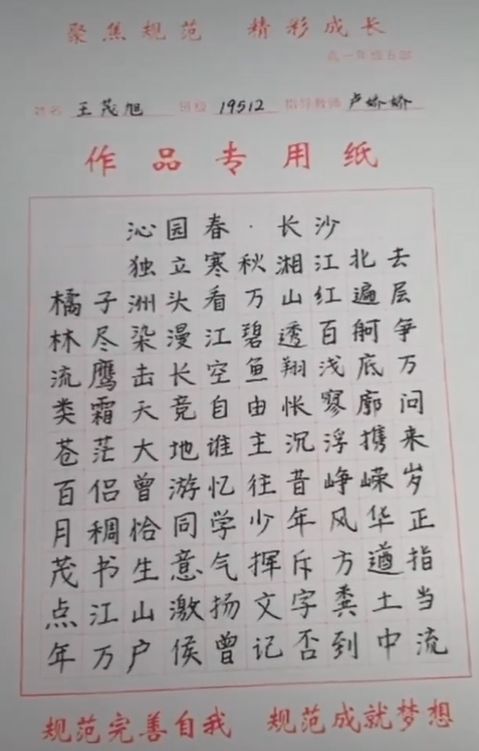 聚焦规范 精彩成长
高一年级五部
姓名 王茂旭 班级 19512 指导教师 卢娇娇
作品专用纸
沁园春·长沙
独立寒秋湘江北去
橘子洲头看万山红遍层
林尽染漫江碧透百舸争
流鹰击长空鱼翔浅底万
类霜天竞自由怅寥廓问
苍茫大地谁主沉浮携来
百侣曾游忆往昔峥嵘岁
月稠恰同学少年风华正
茂书生意气挥斥方遒指
点江山激扬文字粪土当
年万户侯曾记否到中流
规范完善自我 规范成就梦想